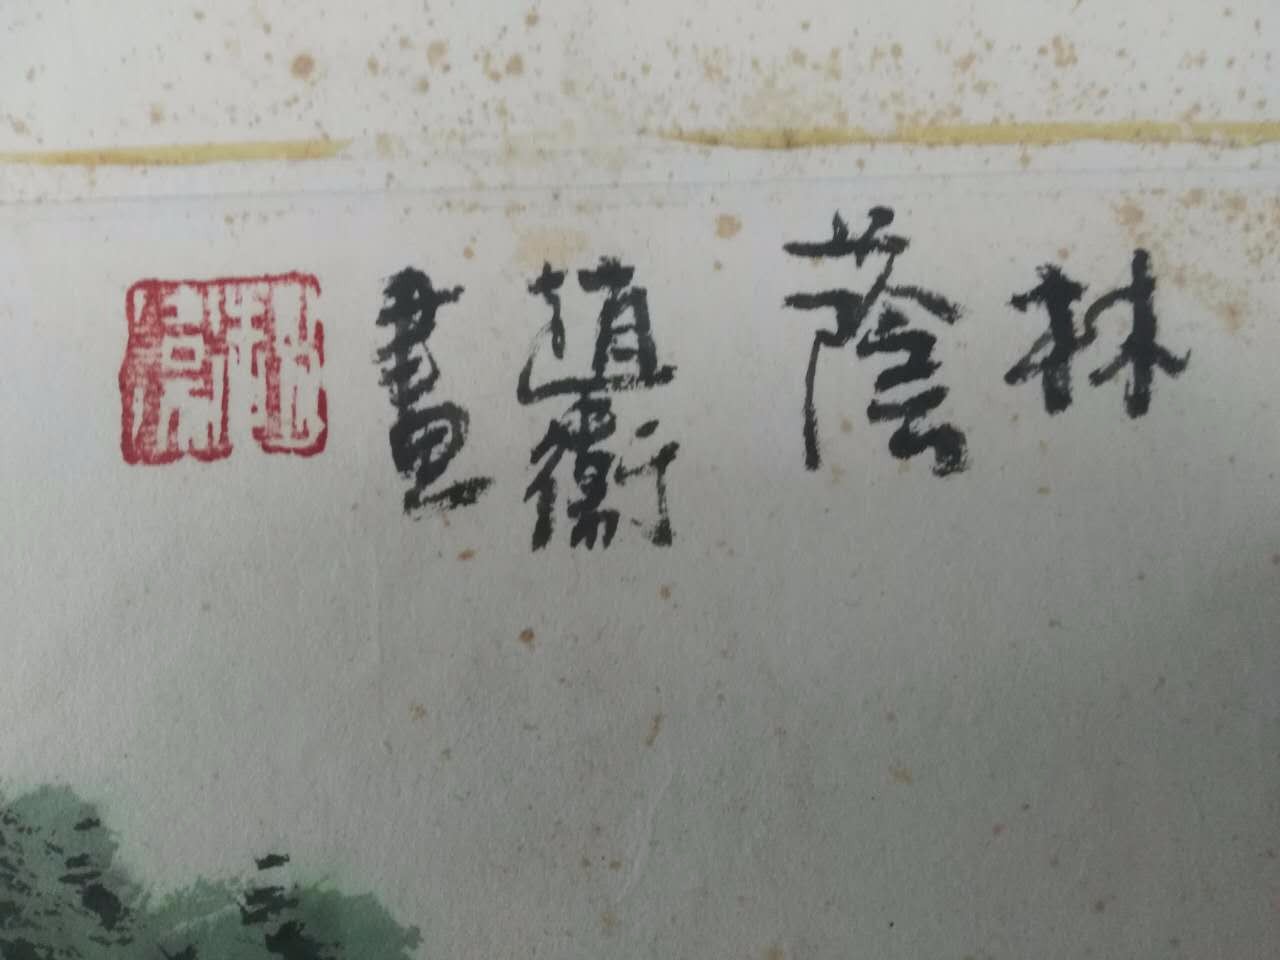 林
蔭
趙衛
畫